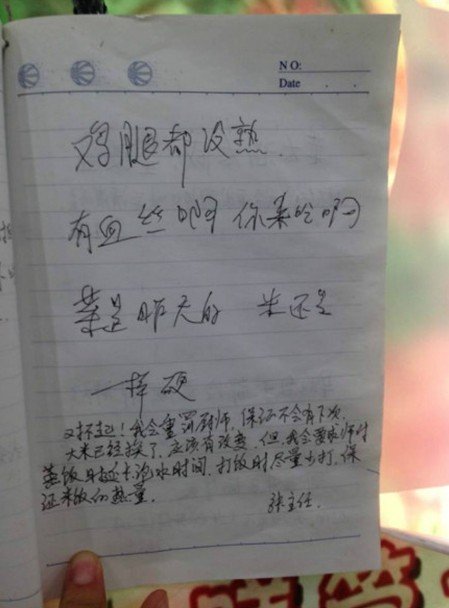 NO:
Date
鸡腿都没熟.
有血丝啊 你来吃啊
菜是昨天的 米还是
一样硬
对不起！我会重罚厨师,保证不会有下次.
大米已经换了,应该有改变,但我会要求师付
蒸饭时延长泡水时间,打饭时尽量打,保
证米饭的热量.
张主任.